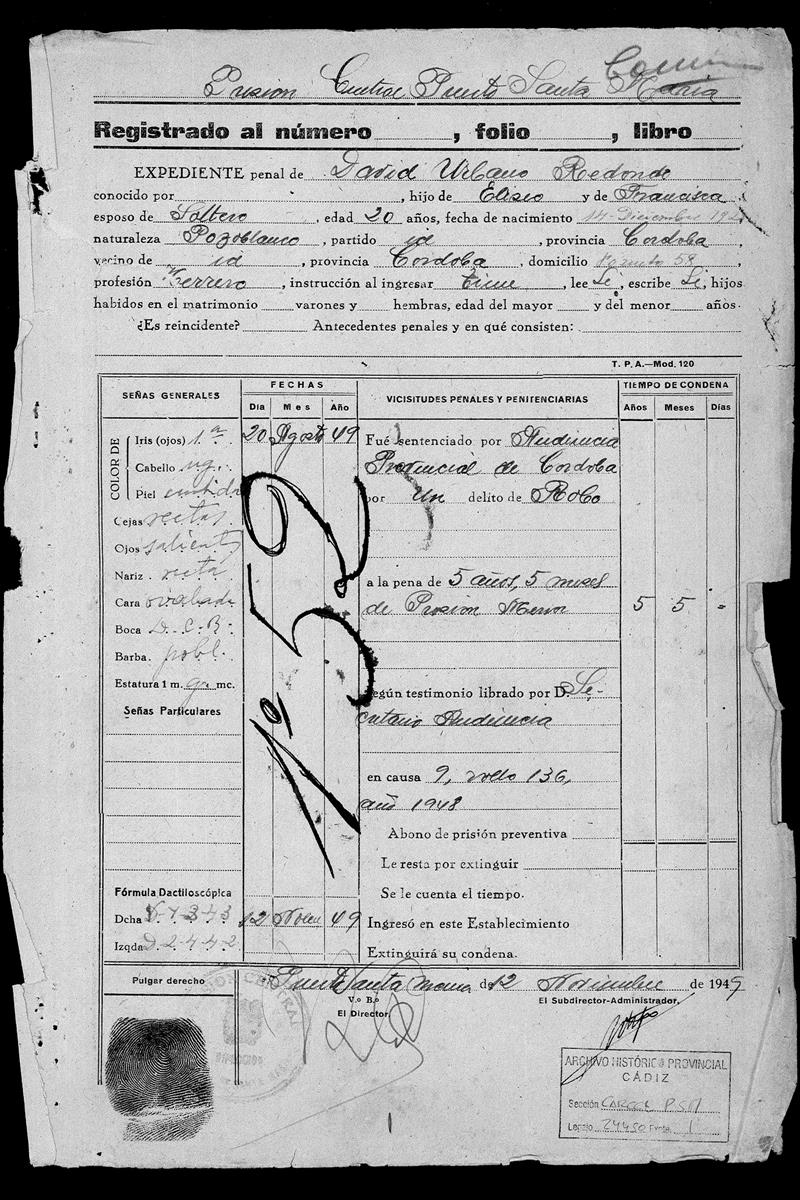 Común
Prision Central Puerto Santa Maria
Registrado al número , folio , libro
EXPEDIENTE penal de David Urbano Redondo
conocido por , hijo de Eliseo y de Francisca
esposo de Soltero , edad 20 años, fecha de nacimiento 14-Diciembre 192
naturaleza Pozoblanco , partido id , provincia Cordoba ,
vecino de id , provincia Cordoba , domicilio 58 ,
profesión Herrero , instrucción al ingresar tiene , lee Si , escribe Si , hijos
habidos en el matrimonio varones y hembras, edad del mayor y del menor años.
¿Es reincidente? Antecedentes penales y en qué consisten:
T. P. A.—Mod. 120
SEÑAS GENERALES
COLOR DE
Iris (ojos) 1.ª
Cabello ng.
Piel
Cejas rectas
Ojos salientes
Nariz recta
Cara ovalada
Boca D. C. B.
Barba pobl.
Estatura 1 m. mc.
Señas Particulares
Fórmula Dactiloscópica
Dcha
Izqda D. 2-4-4-2
FECHAS
Día Mes Año
20 Agosto 49
Nº 52
12 Novbre 49
VICISITUDES PENALES Y PENITENCIARIAS
Fué sentenciado por Audiencia
Provincial de Cordoba
por un delito de Robo
a la pena de 5 años, 5 meses
de Prision Menor
según testimonio librado por D. Se-
cretario Audiencia
en causa 9, rollo 136,
año 1948
Abono de prisión preventiva
Le resta por extinguir
Se le cuenta el tiempo.
Ingresó en este Establecimiento
Extinguirá su condena.
TIEMPO DE CONDENA
Años Meses Días
5 5 -
Pulgar derecho
Puerto Santa Maria de 12 Noviembre de 1949
V.º B.º
El Director,
El Subdirector-Administrador,
ARCHIVO HISTÓRICO PROVINCIAL
CÁDIZ
Sección CARCEL P.S.M
Legajo 24450 Expte. 1
1